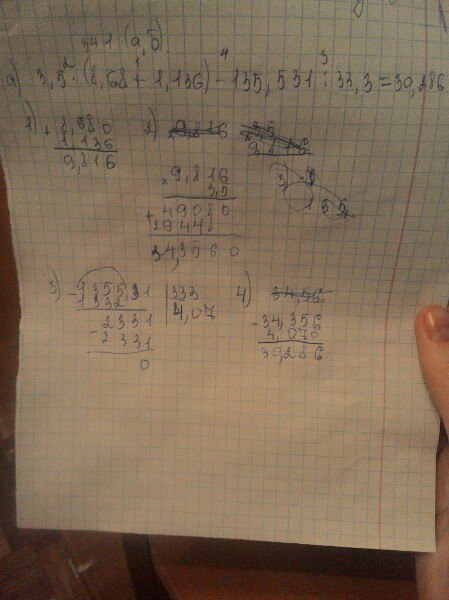 341 (а,б).
а) 3,5 · (8,68 + 1,136) - 135,531 : 33,3 = 30,286
2 1 4 3
1) + 8,680
1,136
9,816
2)
× 9,816
3,5
+ 49080
29448
34,3560
3) - 1355,31 | 333
1332 | 4,07
- 2331
2331
0
4)
- 34,356
4,070
30,286